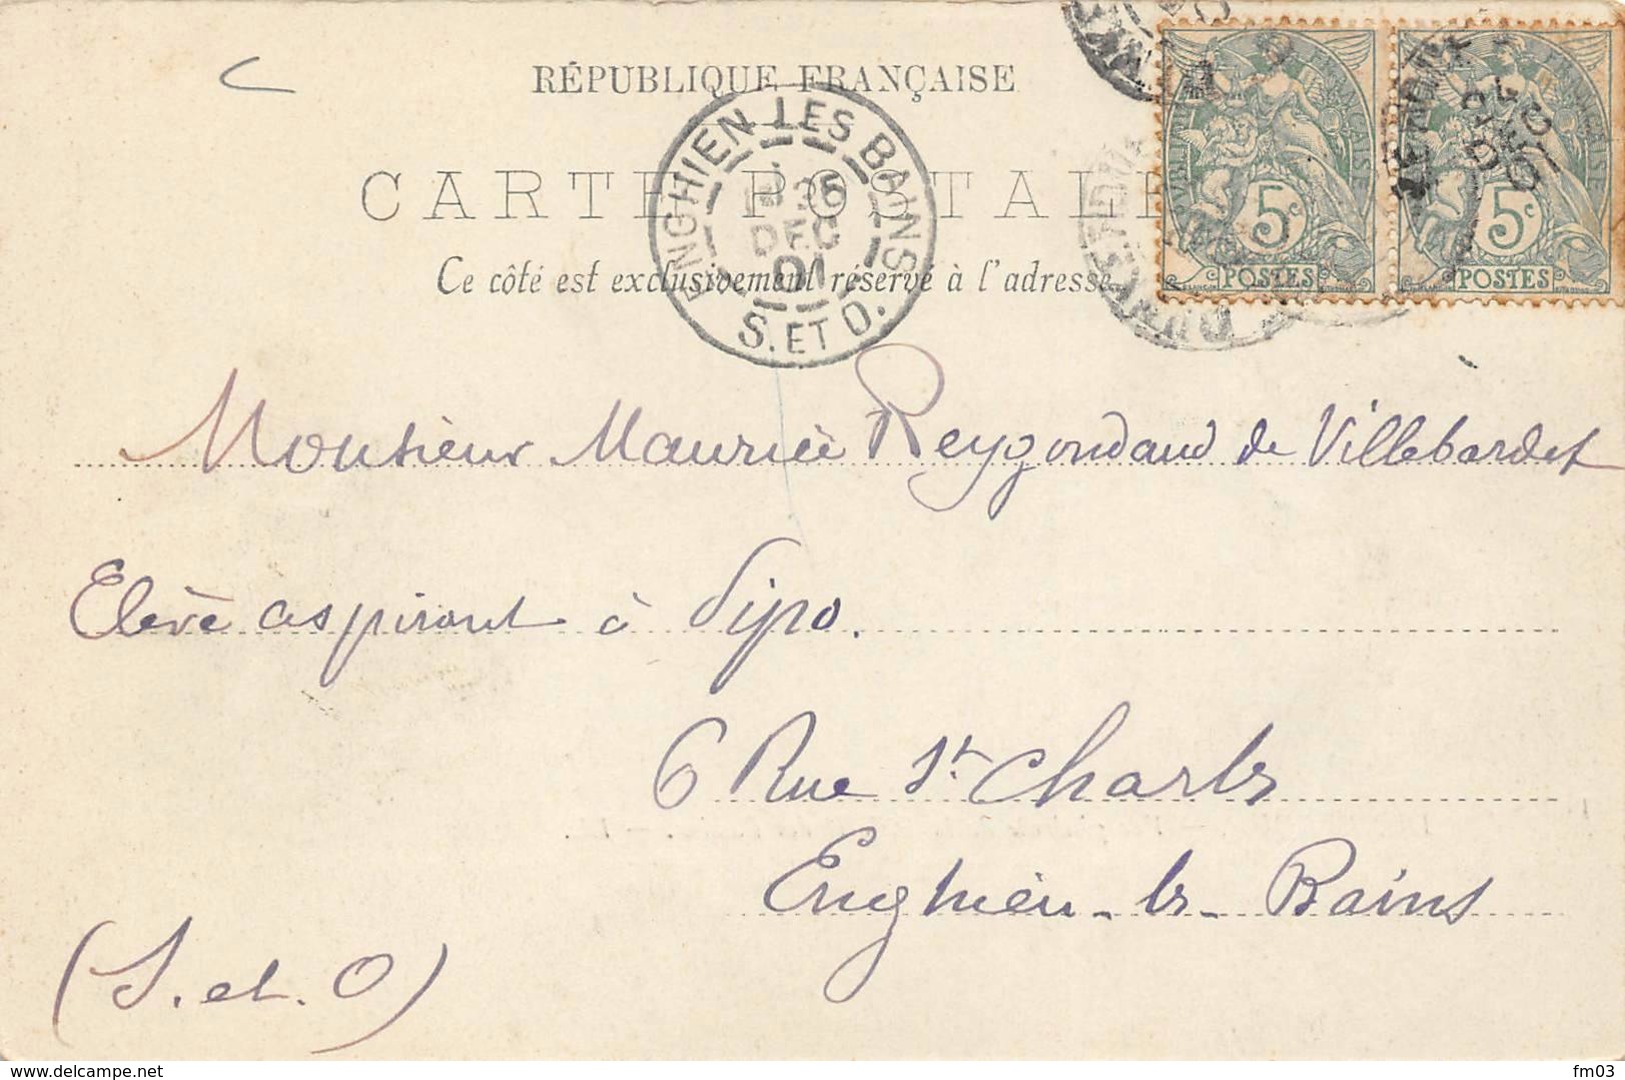 RÉPUBLIQUE FRANÇAISE
CARTE POSTALE
Ce côté est exclusivement réservé à l'adresse
ENGHIEN LES BAINS
DEC
01
S. ET O.
5c
POSTES
5c
POSTES
DEC
01
Monsieur Maurice Reygondaud de Villebardet
Elève aspirant à Sipo.
6 Rue St. Charles
Enghien-les-Bains
(S. et. O)
www.delcampe.net
fm03